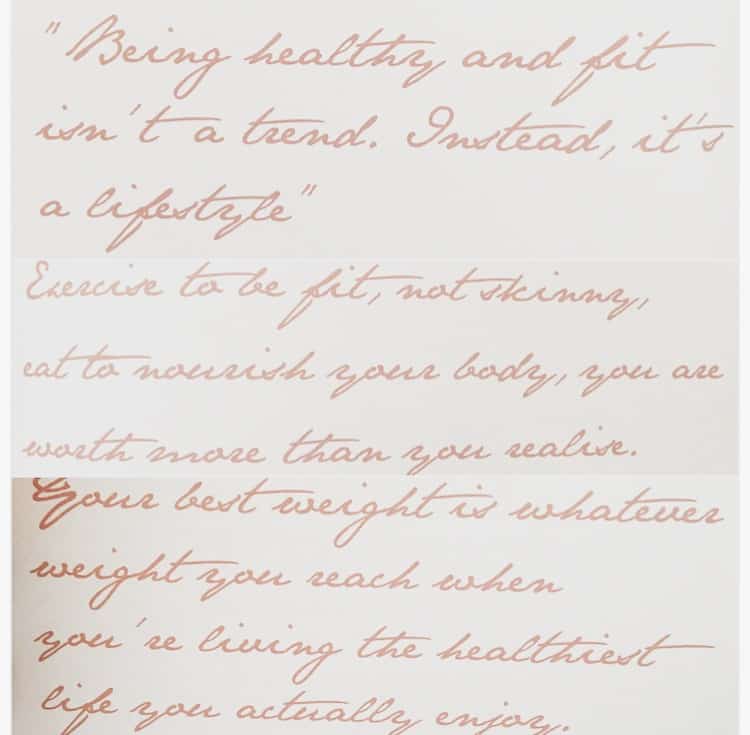 "Being healthy and fit
isn't a trend. Instead, it's
a lifestyle"
Exercise to be fit, not skinny,
eat to nourish your body, you are
worth more than you realise.
Your best weight is whatever
weight you reach when
you're living the healthiest
life you actually enjoy.